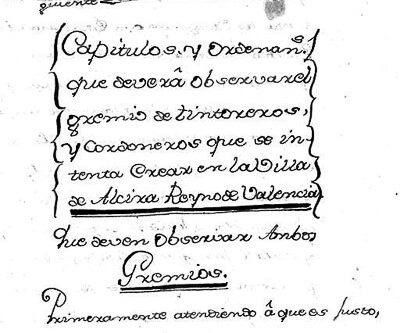 guiente
Capitulos. y ordenans.
que deverâ observar el
gremio de tintoreros,
y Cordoneros que se in-
tenta Crear en la Villa
de Alcira Reyno de Valencia
Que deven observar Ambos
Gremios.
Primeramente atendiendo â que es justo,